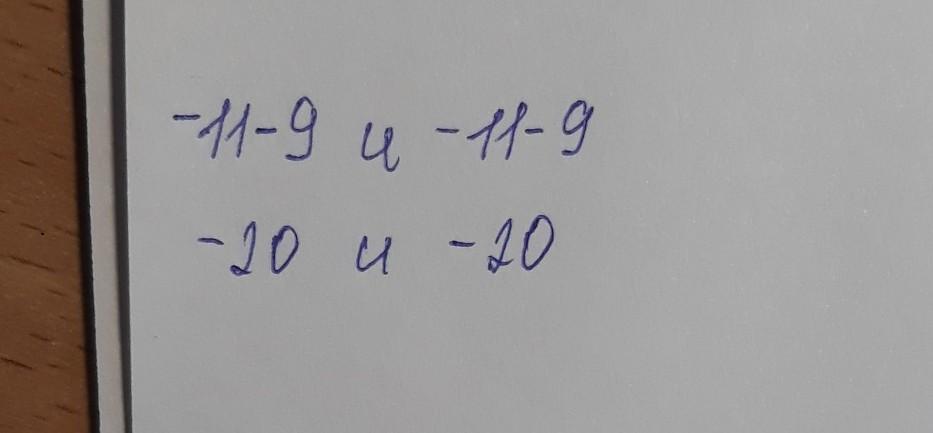 -11-9 и -11-9
-20 и -20